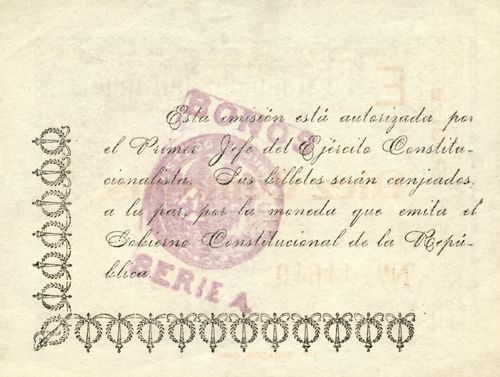 BONOS
Esta emisión está autorizada por
el Primer Jefe del Ejército Constitu-
cionalista. Sus billetes serán canjeados,
a la par, por la moneda que emita el
Gobierno Constitucional de la Repú-
blica.
SERIE A